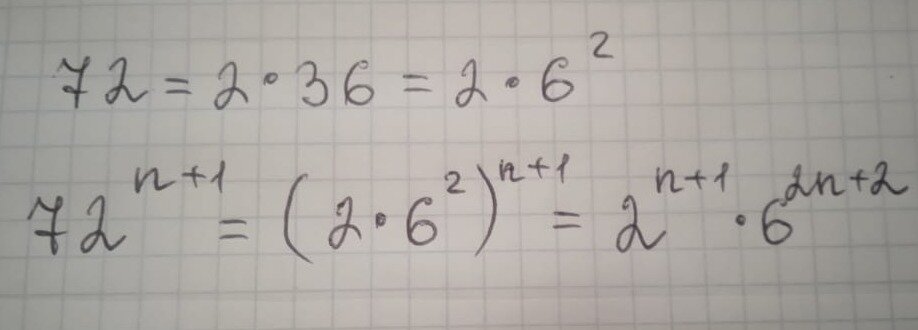 72 = 2 • 36 = 2 • 6²
72ⁿ⁺¹ = (2 • 6²)ⁿ⁺¹ = 2ⁿ⁺¹ • 6²ⁿ⁺²